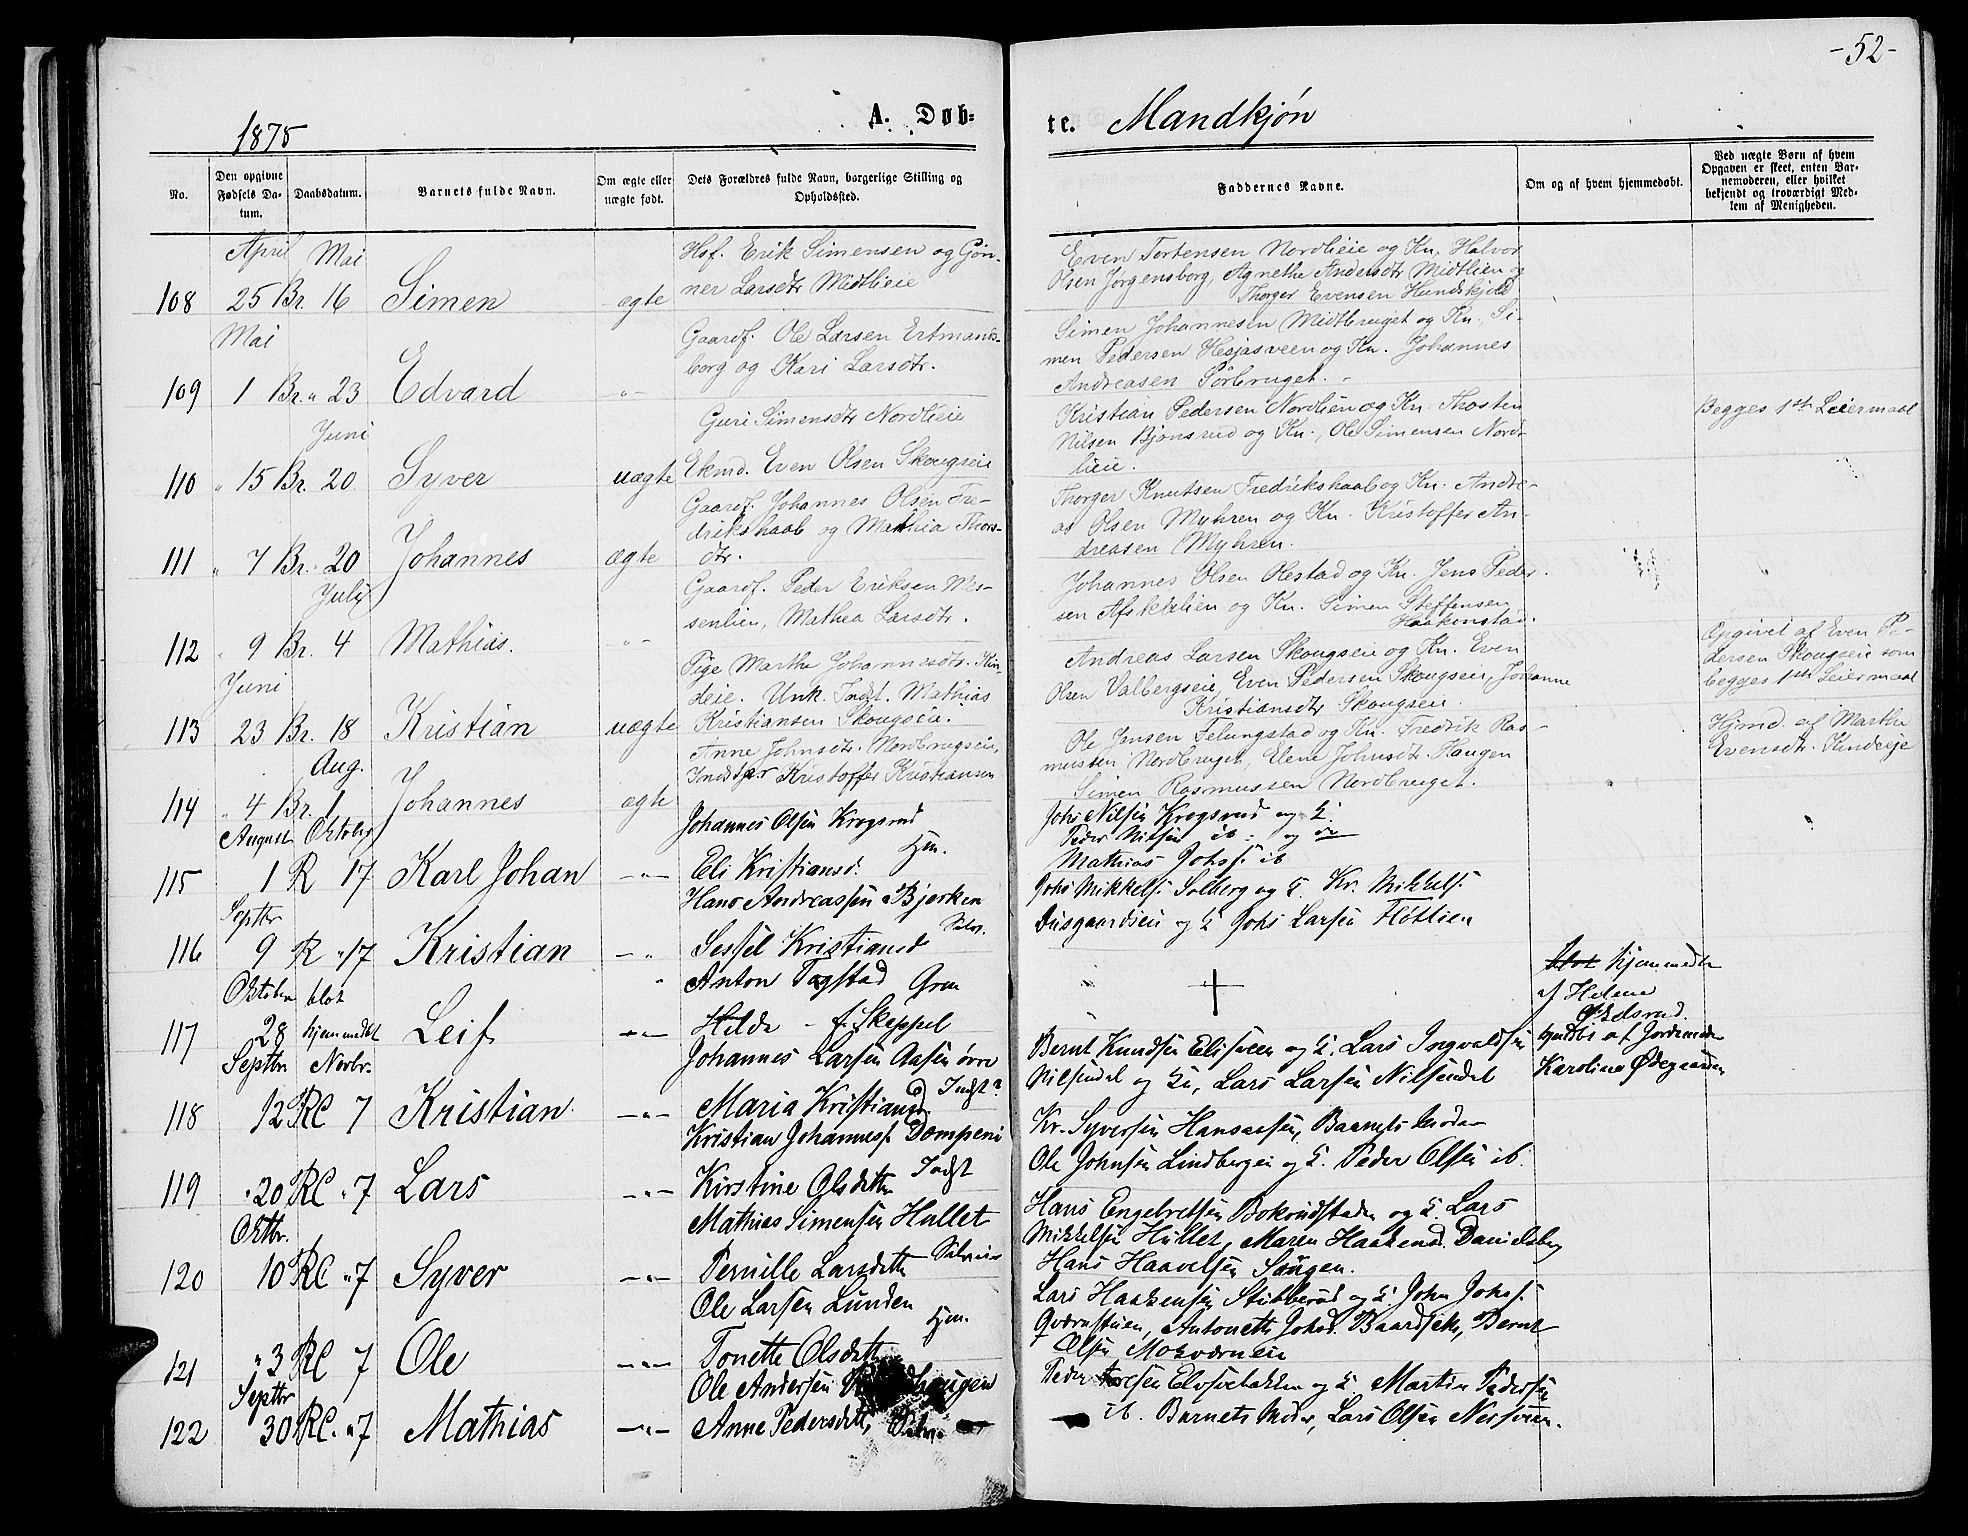 -52-
1875
A. Døb-
te. Mandkjøn
No.
Den opgivne Fødsels Datum.
Daabsdatum.
Barnets fulde Navn.
Om ægte eller uægte født.
Dets Forældres fulde Navn, borgerlige Stilling og Opholdssted.
Faddernes Navne.
Om og af hvem hjemmedøbt.
Ved uægte Børn af hvem Opgaven er skeet, enten Barnemoderen, eller hvilket bekjendt og troværdigt Medlem af Menigheden.
April Mai
108 25 Br. 16 Simen ægte
Hsf. Erik Simensen og Gun-
ner Larsdtr Midtlieie
Even Tortensen Nordlieie og Kn. Halvor
Olsen Jørgensborg, Agnethe Andersdtr Midtlien og
Thorger Evensen Hundskjold
Mai
109 1 Br. " 23 Edvard - " -
Gaardf. Ole Larsen Ertmands-
borg og Kari Larsdtr.
Simen Johannesen Midtbruget og Kn. Si-
men Pedersen Hesjasveen og Kn. Johannes
Andreasen Sørbruget. -
Juni
110 " 15 Br. 20 Syver uægte
Guri Simensdtr Nordlieie
Ekmd. Even Olsen Skougseie
Kristian Pedersen Nordlien og Kn. Thosten
Nilsen Bjønsrud og Kn., Ole Simensen Nord-
lieie.
Begges 1ste Leiermaal
111 " 7 Br. " 20 Johannes ægte
Gaardf. Johannes Olsen Fre-
drikshaab og Mathia Thors-
dtr.
Thorger Knutsen Fredrikshaab og Kn. Andre-
as Olsen Myhren og Kn. Kristoffer An-
dreasen Myhren.
Juli
112 " 9 Br. 4 Mathias. " -
Gaardf. Peder Eriksen Mes-
senlien, Mathea Larsdtr.
Johannes Olsen Olestad og Kn. Jens Peder-
sen Afskiklien og Kn. Simen Steffensen
Haakenstad.
Juni
113 23 Br. 18 Kristian uægte
Pige Marthe Johannesdtr. Kin-
deie. Unk. Indst. Mathias
Kristiansen Skougseie.
Andreas Larsen Skougseie og Kn. Even
Olsen Valbergseie, Even Pedersen Skougseie, Johanne
Kristiansdtr Skougseie.
Opgivet af Even Pe-
dersen Skougseie som
begges 1ste Leiermaal
Aug.
114 " 4 Br. 1 Johannes ægte
Anne Johnsdtr. Nordbrugseie,
Indst. Kristoffer Kristiansen
Ole Jensen Felungstad og Kn. Fredrik Ras-
mussen Nordbruget, Elene Johnsdtr. Haugen
Simen Rasmussen Nordbruget.
Hjmd. af Marthe
Evensdtr. Kindeie
August Oktober
115 1 R 17 Karl Johan - " -
Johannes Olsen Krogsrud
Hjm.
Eli Kristiansd.
Johs Nilsen Krogsrud og K.
Peder Nilsen ib: og do
Mathias Johsf. ib
Septbr
116 9 R " 17 Kristian - " -
Hans Andreassen Bjerken
Sessel Kristiansd
Johs Mikkelsf. Solberg og K. Kr. Mikkelsf.
Dusgaardseie og K Johs Larsen Fløttien
Oktober blot
117 28 hjemmedbt Leif - " -
Anton Tagstad Gran
Hilda f. Skeppel
" +
hjemmedbt
af Helene
Septbr Novbr.
118 12 RC 7 Kristian - " -
Johannes Larsen Aasen øvre
Maria Kristiansd. Indst?
Bernt Knudsen Elisveen og K. Lars Ingvaldsen
Nilsendal og K, Lars Larsen Nilsendal
af Jordemoder
Karoline Ødegaarden
119 " 20 RC " 7 Lars - " -
Kristian Johannesf. Dompeni
Indst
Kirstine Olsdatter
Kr. Syversen Hansæssen, Barnets Moder
Ole Johnsen Lindbergeie og K. Peder Olsen ib.
Oktbr.
120 10 RC " 7 Syver - " -
Mathias Simensen Hullet
Pernille Larsdatter
Hans Engebretsen Bokrudstaden og K. Lars
Mikkelsen Hullet, Maren Haakensd. Danielsby
Hans Haavelsen Sangen.
121 " 3 RC 7 Ole - " -
Ole Larsen Lunden
Hjm.
Tonette Olsdatt
Lars Haakensen Stibberud og K John Johsf.
Qværnstuen, Antonette Johsd. Baardseth, Bernt
Olsen Mosværneie
Septbr
122 30 RC. " 7 Mathias - " -
Ole Andersen
Anne Pedersdatt,
Peder Elvsvebakken og K. Martin Pedersen
ib. Barnets Moder, Lars Olsen Nersveen.